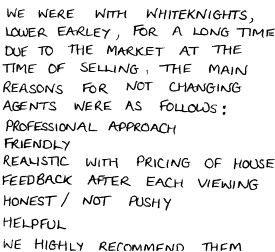 WE WERE WITH WHITEKNIGHTS,
LOWER EARLEY, FOR A LONG TIME
DUE TO THE MARKET AT THE
TIME OF SELLING, THE MAIN
REASONS FOR NOT CHANGING
AGENTS WERE AS FOLLOWS:
PROFESSIONAL APPROACH
FRIENDLY
REALISTIC WITH PRICING OF HOUSE
FEEDBACK AFTER EACH VIEWING
HONEST / NOT PUSHY
HELPFUL
WE HIGHLY RECOMMEND THEM